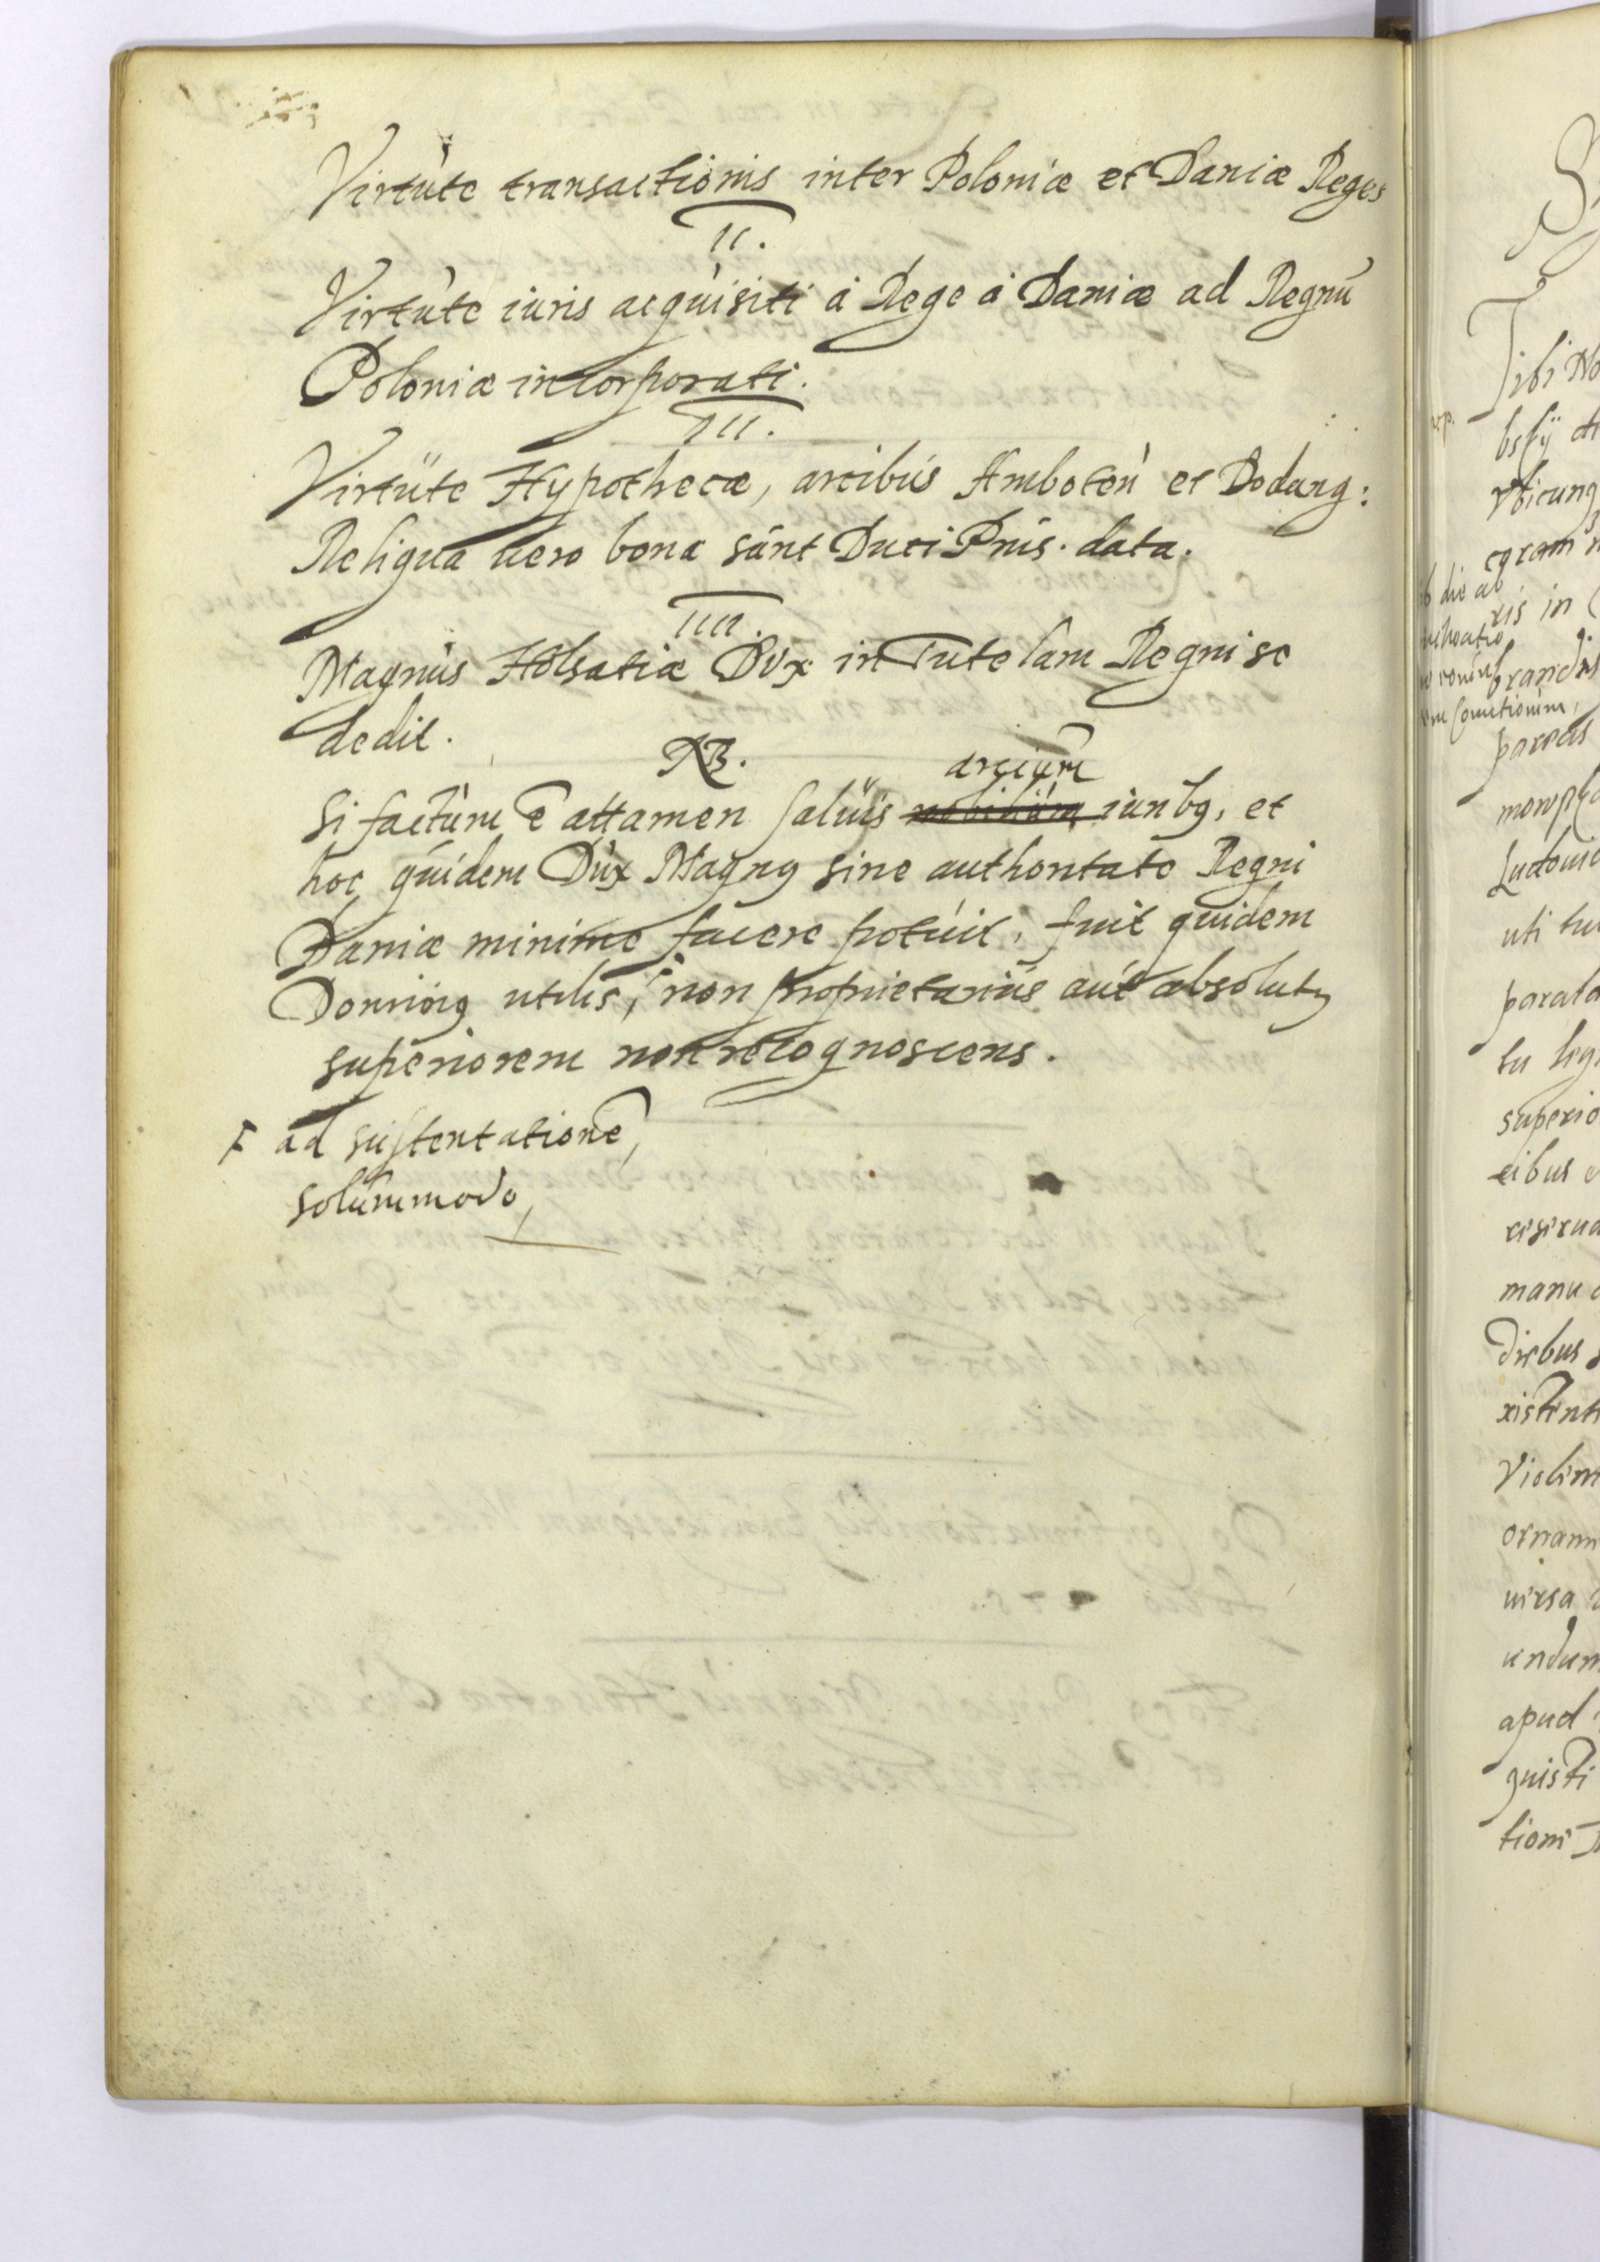 Virtute transactionis inter Poloniæ et Daniæ Reges
II.
Virtute iuris acquisiti á Rege á Daniæ ad Regnū
Poloniæ incorporati.
III.
Virtute Hypothecæ, arcibus Amboten et Dodang:
Reliqua uero bona sunt Duci Pnis. data.
IIII.
Magnus Holsatiæ Dux in Tutelam Regni se
dedit.
NB.
arcium
Si factum ē attamen saluis nobilium iuribꝫ, et
hoc quidem Dux Magnꝫ sine authoritate Regni
Daniæ minime facere potuit, fuit quidem
Dominꝫ utilis, F non proprietarius aut absolutꝫ
superiorem non recognoscens.
F ad sustentationē,
solummodo,
Tibi No
bsģ di
Vbicunq
egram n
b die ab
ris in C
brandis
em Comitiorum,
parcas
monopho
Ludouic
uti tu
parata
tu leg
superio
cibus
manu
Diebus
xistent
Violent
ornam
uersa
undum
apud
quisti
tioni